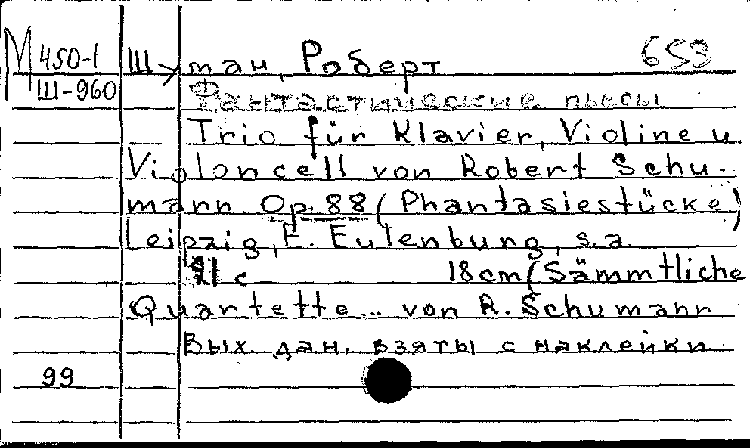 М 450-1 Шуман, Роберт 653
Ш-960
Фантастические пьесы
Trio für Klavier, Violine u.
Violoncell von Robert Schu-
mann Op. 88 (Phantasiestücke)
Leipzig, E. Eulenburg, s.a.
21 c 18 cm (Sämmtliche
Quartette... von R. Schumann
Вых. дан. взяты с наклейки
99